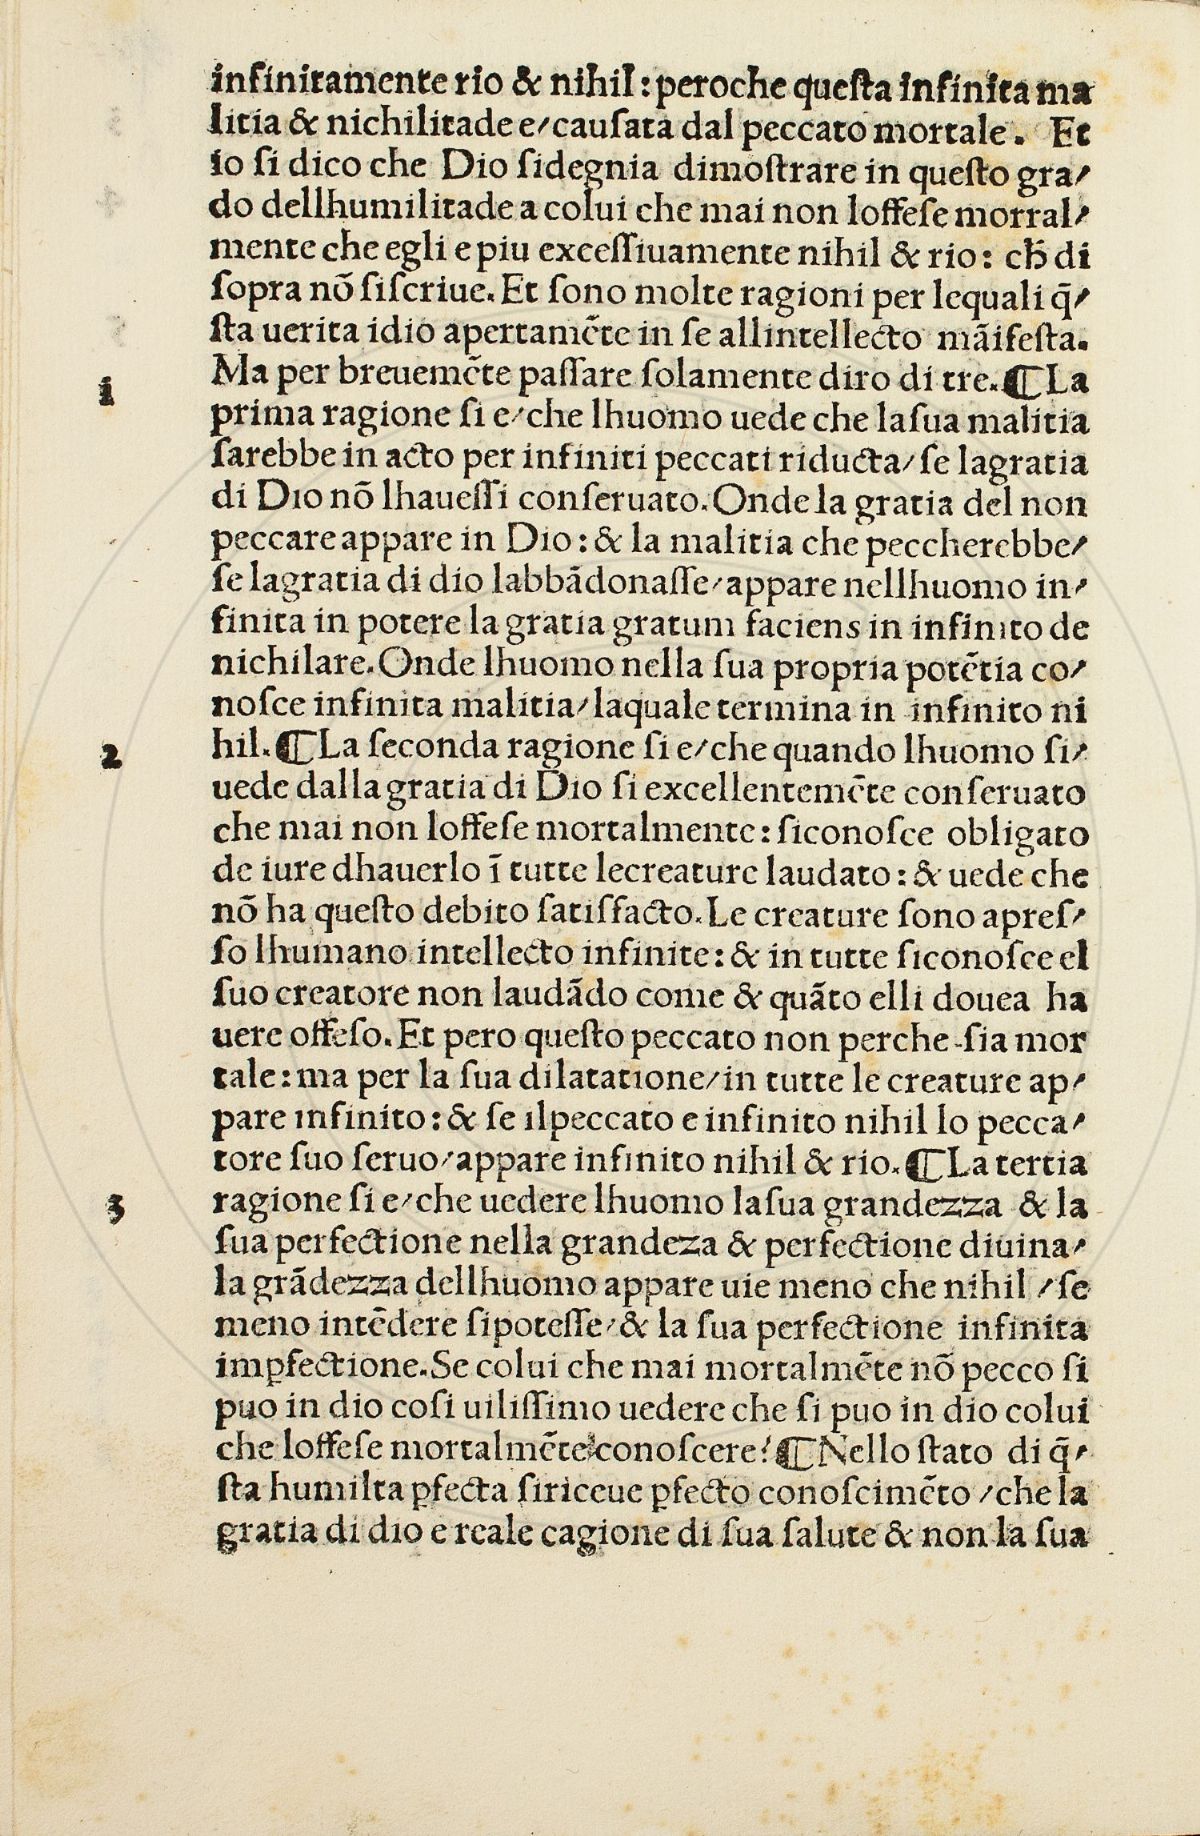 infinitamente rio & nihil: peroche queſta infinita ma
litia & nichilitade e/cauſata dal peccato mortale. Et
io ſi dico che Dio ſidegnia dimoſtrare in queſto gra/
do dellhumilitade a colui che mai non loffeſe morral/
mente che egli e piu exceſſiuamente nihil & rio: cħ di
ſopra nõ ſiſcriue. Et ſono molte ragioni per lequali q̃/
ſta uerita idio apertamẽte in ſe allintellecto mãifeſta.
Ma per breuemẽte paſſare ſolamente diro di tre. ¶ La
1
prima ragione ſi e/che lhuomo uede che laſua malitia
ſarebbe in acto per infiniti peccati riducta/ſe lagratia
di Dio nõ lhaueſſi conſeruato. Onde la gratia del non
peccare appare in Dio: & la malitia che peccherebbe/
ſe lagratia di dio labbãdonaſſe/appare nellhuomo in/
finita in potere la gratia gratum faciens in infinito de
nichilare. Onde lhuomo nella ſua propria potẽtia co/
noſce infinita malitia/laquale termina in infinito ni
2
hil. ¶ La ſeconda ragione ſi e/che quando lhuomo ſi/
uede dalla gratia di Dio ſi excellentemẽte conſeruato
che mai non loffeſe mortalmente: ſiconoſce obligato
de iure dhauerlo ĩ tutte lecreature laudato: & uede che
nõ ha queſto debito ſatiſfacto. Le creature ſono apreſ/
ſo lhumano intellecto infinite: & in tutte ſiconoſce el
ſuo creatore non laudãdo come & quãto elli douea ha
uere offeſo. Et pero queſto peccato non perche ſia mor
tale: ma per la ſua dilatatione/in tutte le creature ap/
pare infinito: & ſe ilpeccato e infinito nihil lo pecca/
tore ſuo ſeruo/appare infinito nihil & rio. ¶ La tertia
3
ragione ſi e/che uedere lhuomo laſua grandezza & la
ſua perfectione nella grandeza & perfectione diuina/
la grãdezza dellhuomo appare uie meno che nihil /ſe
meno intẽdere ſipoteſſe/& la ſua perfectione infinita
imꝑfectione. Se colui che mai mortalmẽte nõ pecco ſi
puo in dio coſi uiliſſimo uedere che ſi puo in dio colui
che loffeſe mortalmẽte conoſcere? ¶ Nello ſtato di q̃/
ſta humilta ꝑfecta ſiriceue ꝑfecto conoſcimẽto /che la
gratia di dio e reale cagione di ſua ſalute & non la ſua